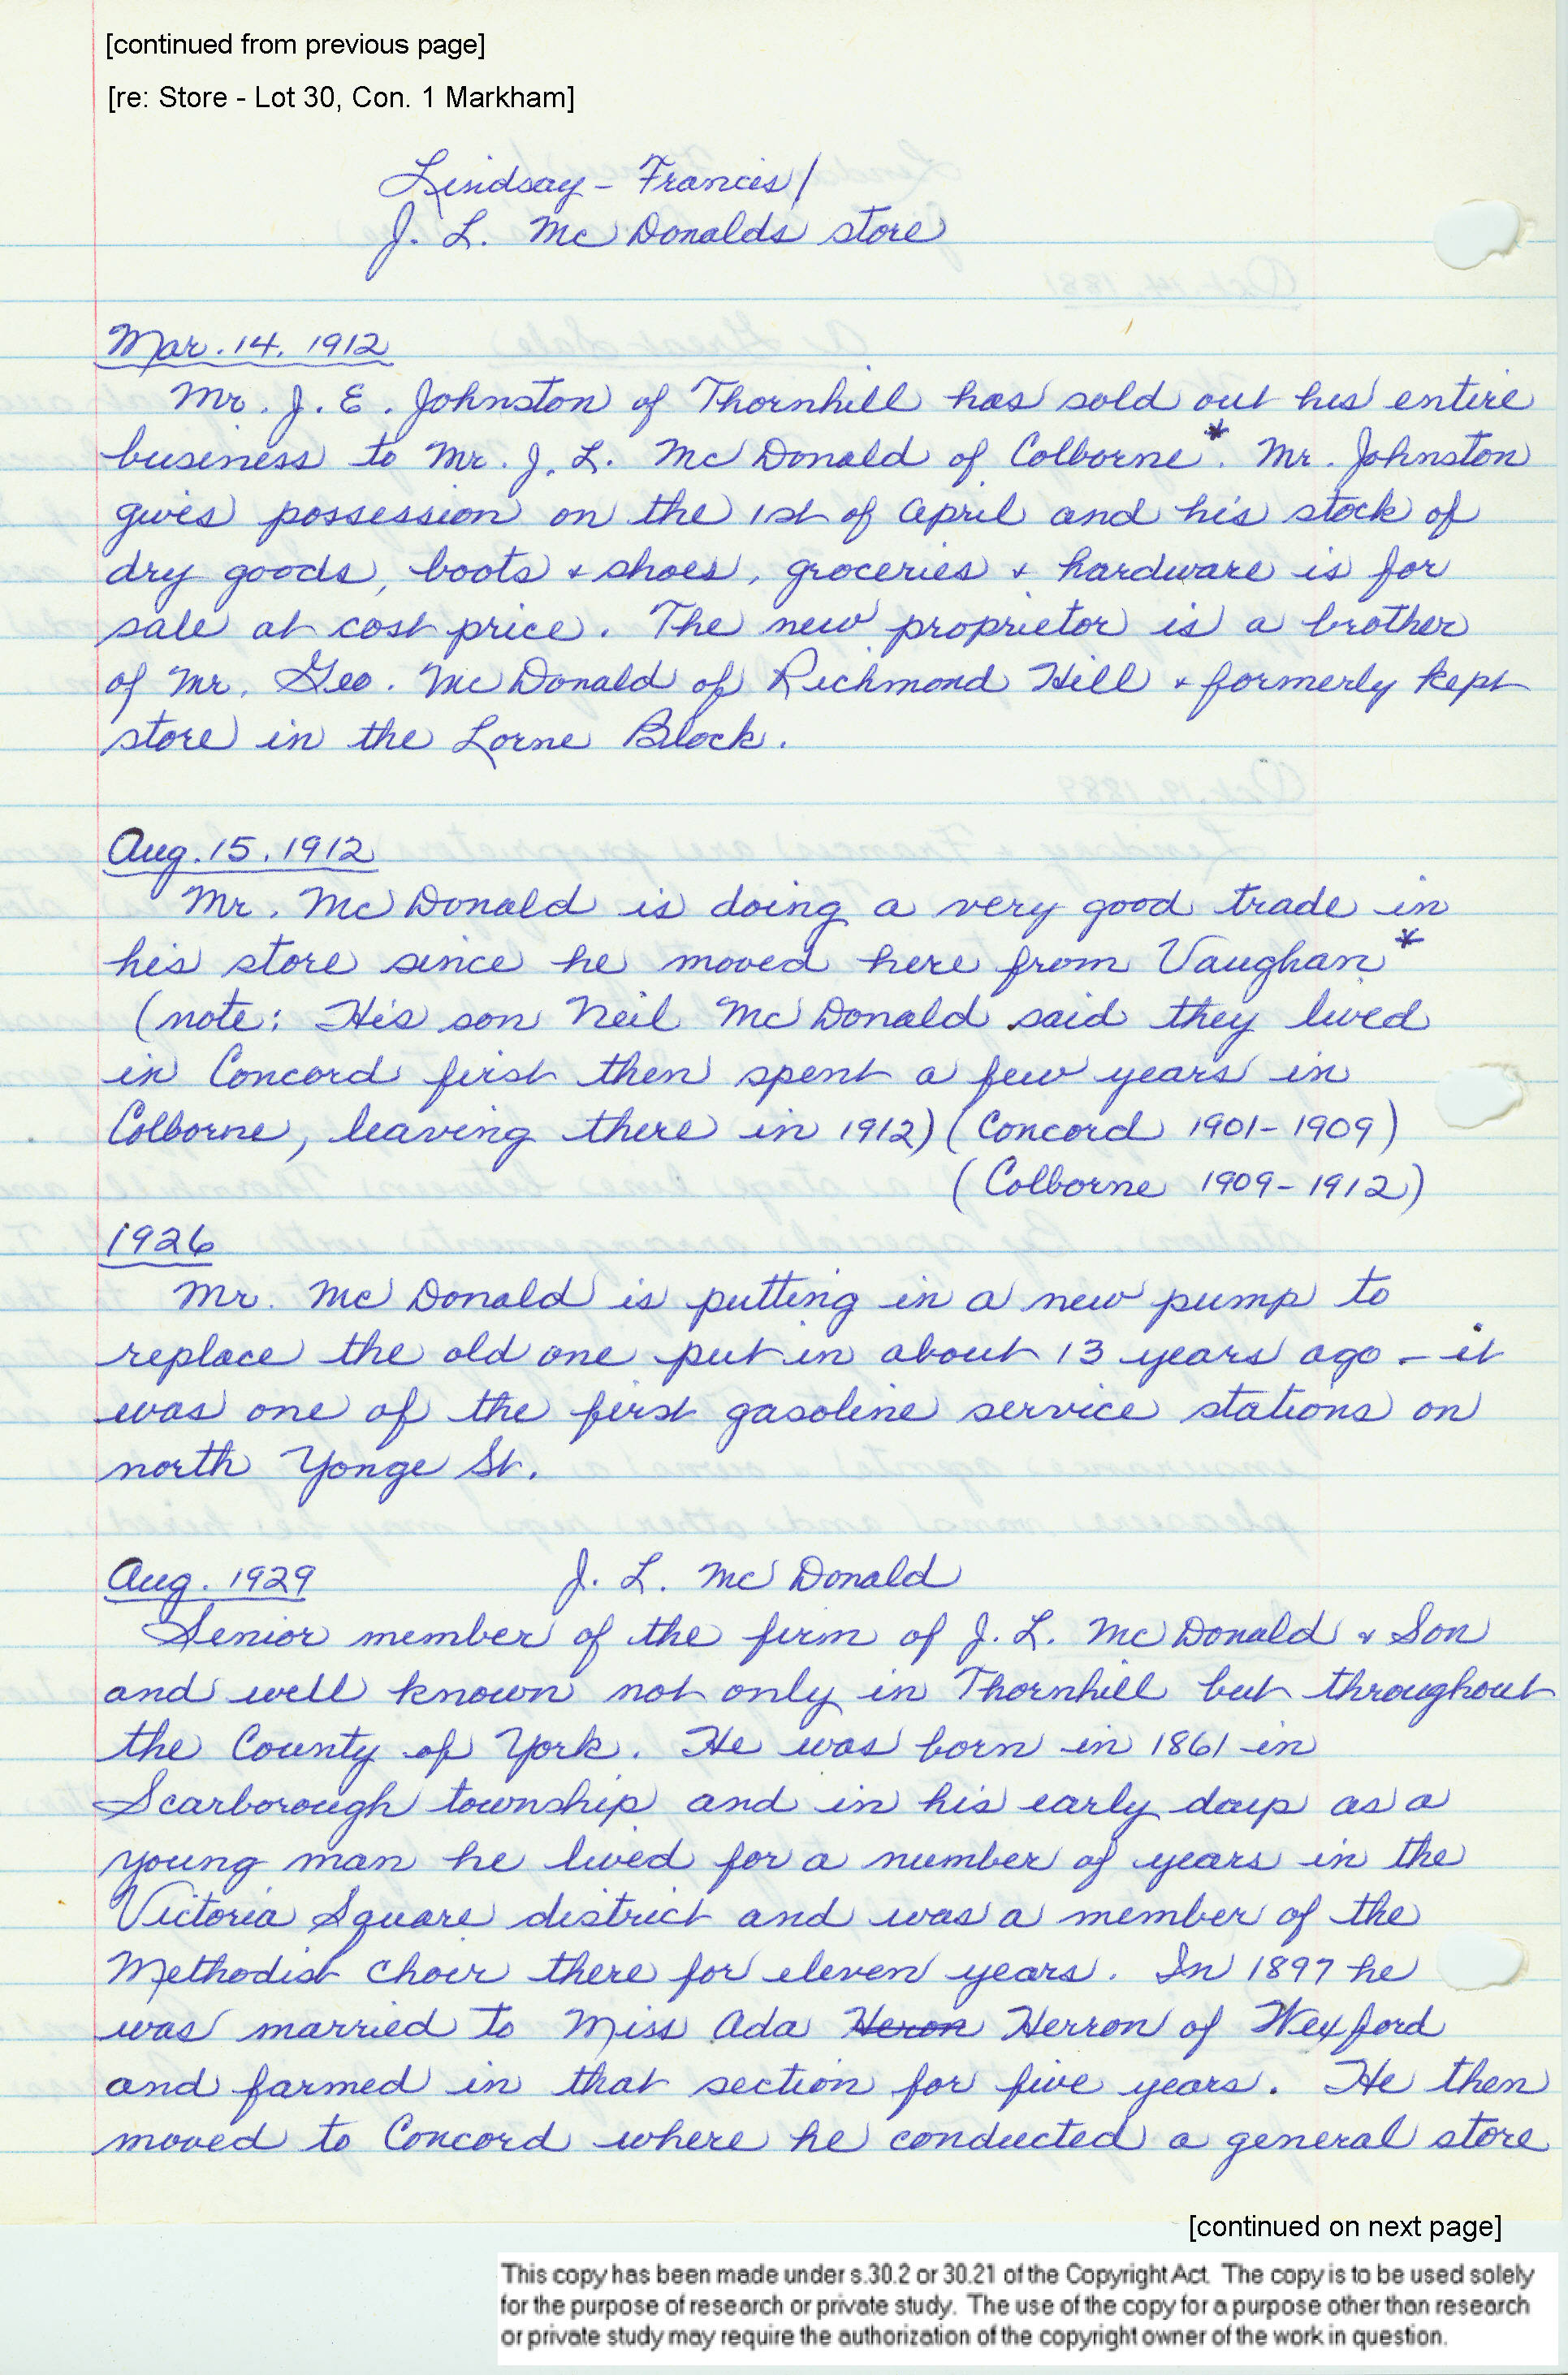 [continued from previous page]
[re: Store - Lot 30, Con. 1 Markham]
Lindsay - Francis/
J. L. McDonalds store
Mar. 14. 1912
Mr. J. E. Johnston of Thornhill has sold out his entire
business to Mr. J. L. McDonald of Colborne*. Mr. Johnston
gives possession on the 1st of April and his stock of
dry goods, boots & shoes, groceries & hardware is for
sale at cost price. The new proprietor is a brother
of Mr. Geo. McDonald of Richmond Hill & formerly kept
store in the Lorne Block.
Aug. 15. 1912
Mr. McDonald is doing a very good trade in
his store since he moved here from Vaughan*
(note: His son Neil McDonald said they lived
in Concord first then spent a few years in
Colborne, leaving there in 1912) (Concord 1901-1909)
(Colborne 1909-1912)
1926
Mr. McDonald is putting in a new pump to
replace the old one put in about 13 years ago - it
was one of the first gasoline service stations on
north Yonge St.
Aug. 1929 J. L. McDonald
Senior member of the firm of J. L. McDonald & Son
and well known not only in Thornhill but throughout
the County of York. He was born in 1861 in
Scarborough township and in his early days as a
young man he lived for a number of years in the
Victoria Square district and was a member of the
Methodist choir there for eleven years. In 1897 he
was married to Miss Ada Heron Herron of Wexford
and farmed in that section for five years. He then
moved to Concord where he conducted a general store
[continued on next page]
This copy has been made under s.30.2 or 30.21 of the Copyright Act. The copy is to be used solely
for the purpose of research or private study. The use of the copy for a purpose other than research
or private study may require the authorization of the copyright owner of the work in question.